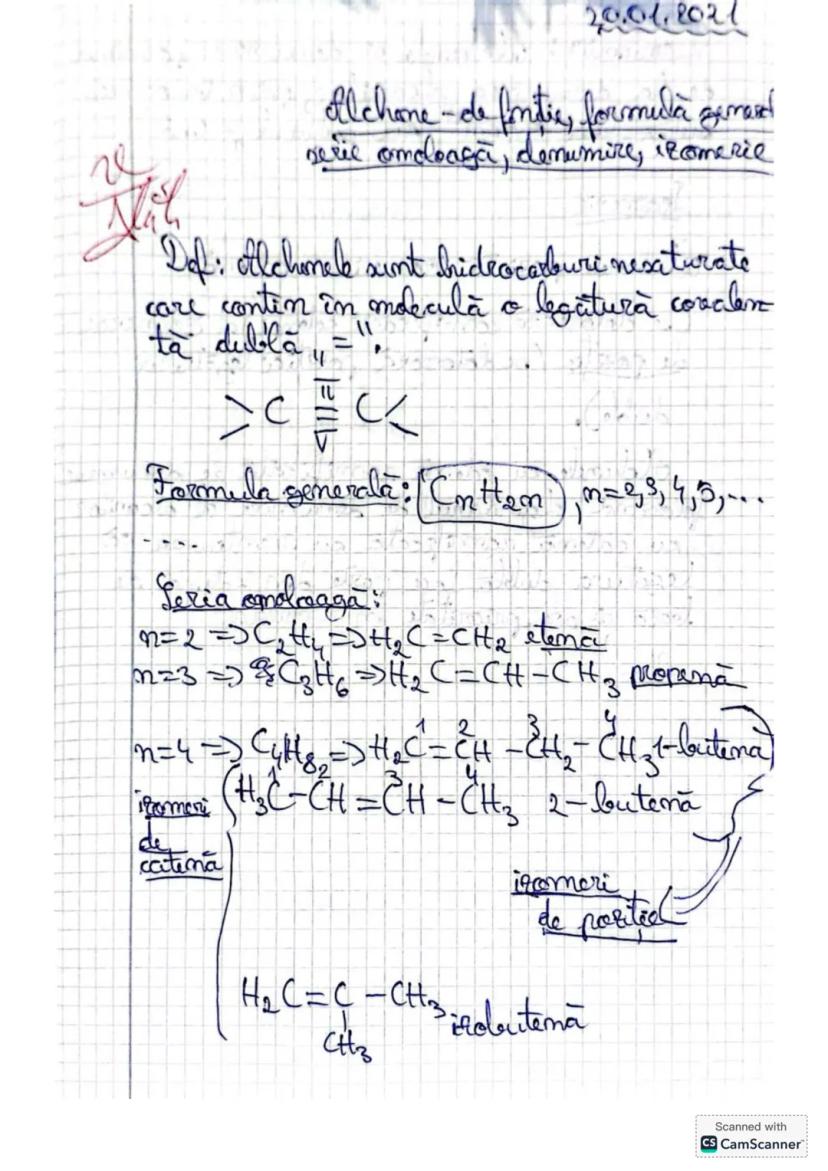 20.01.2021
Alchene - definiție, formulă general
serie omoloagă, denumire, izomerie
Def: Alchenele sunt hidrocarburi nesaturate
care conțin în moleculă o legătură covalen-
tă dublă „=”.
>C = C<
Formula generală: CnH2n, n=2,3,4,5,...
....
Seria omoloagă:
n=2 => C2H4 => H2C=CH2 etenă
n=3 => C3H6 => H2C=CH-CH3 propenă
n=4 => C4H8 => H2C=CH-CH2-CH3 1-butenă
1 2 3 4
H3C-CH=CH-CH3 2-butenă
1 2 3 4
izomeri
de
catenă
izomeri
de poziție
H2C=C-CH3 izobutenă
|
CH3
Scanned with
CS CamScanner